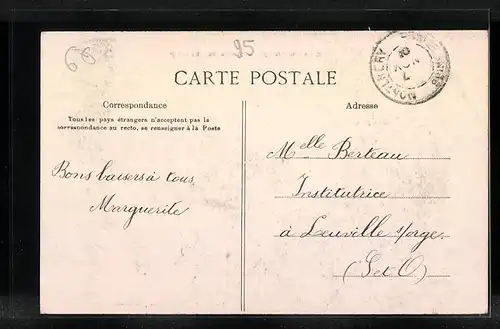 95
CARTE POSTALE
Correspondance
Tous les pays étrangers n'acceptent pas la
correspondance au recto, se renseigner à la Poste
Bons baisers à tous
Marguerite
MONTLHERY
Adresse
Melle Berteau
Institutrice
à Leuville s/orge.
(S et O)